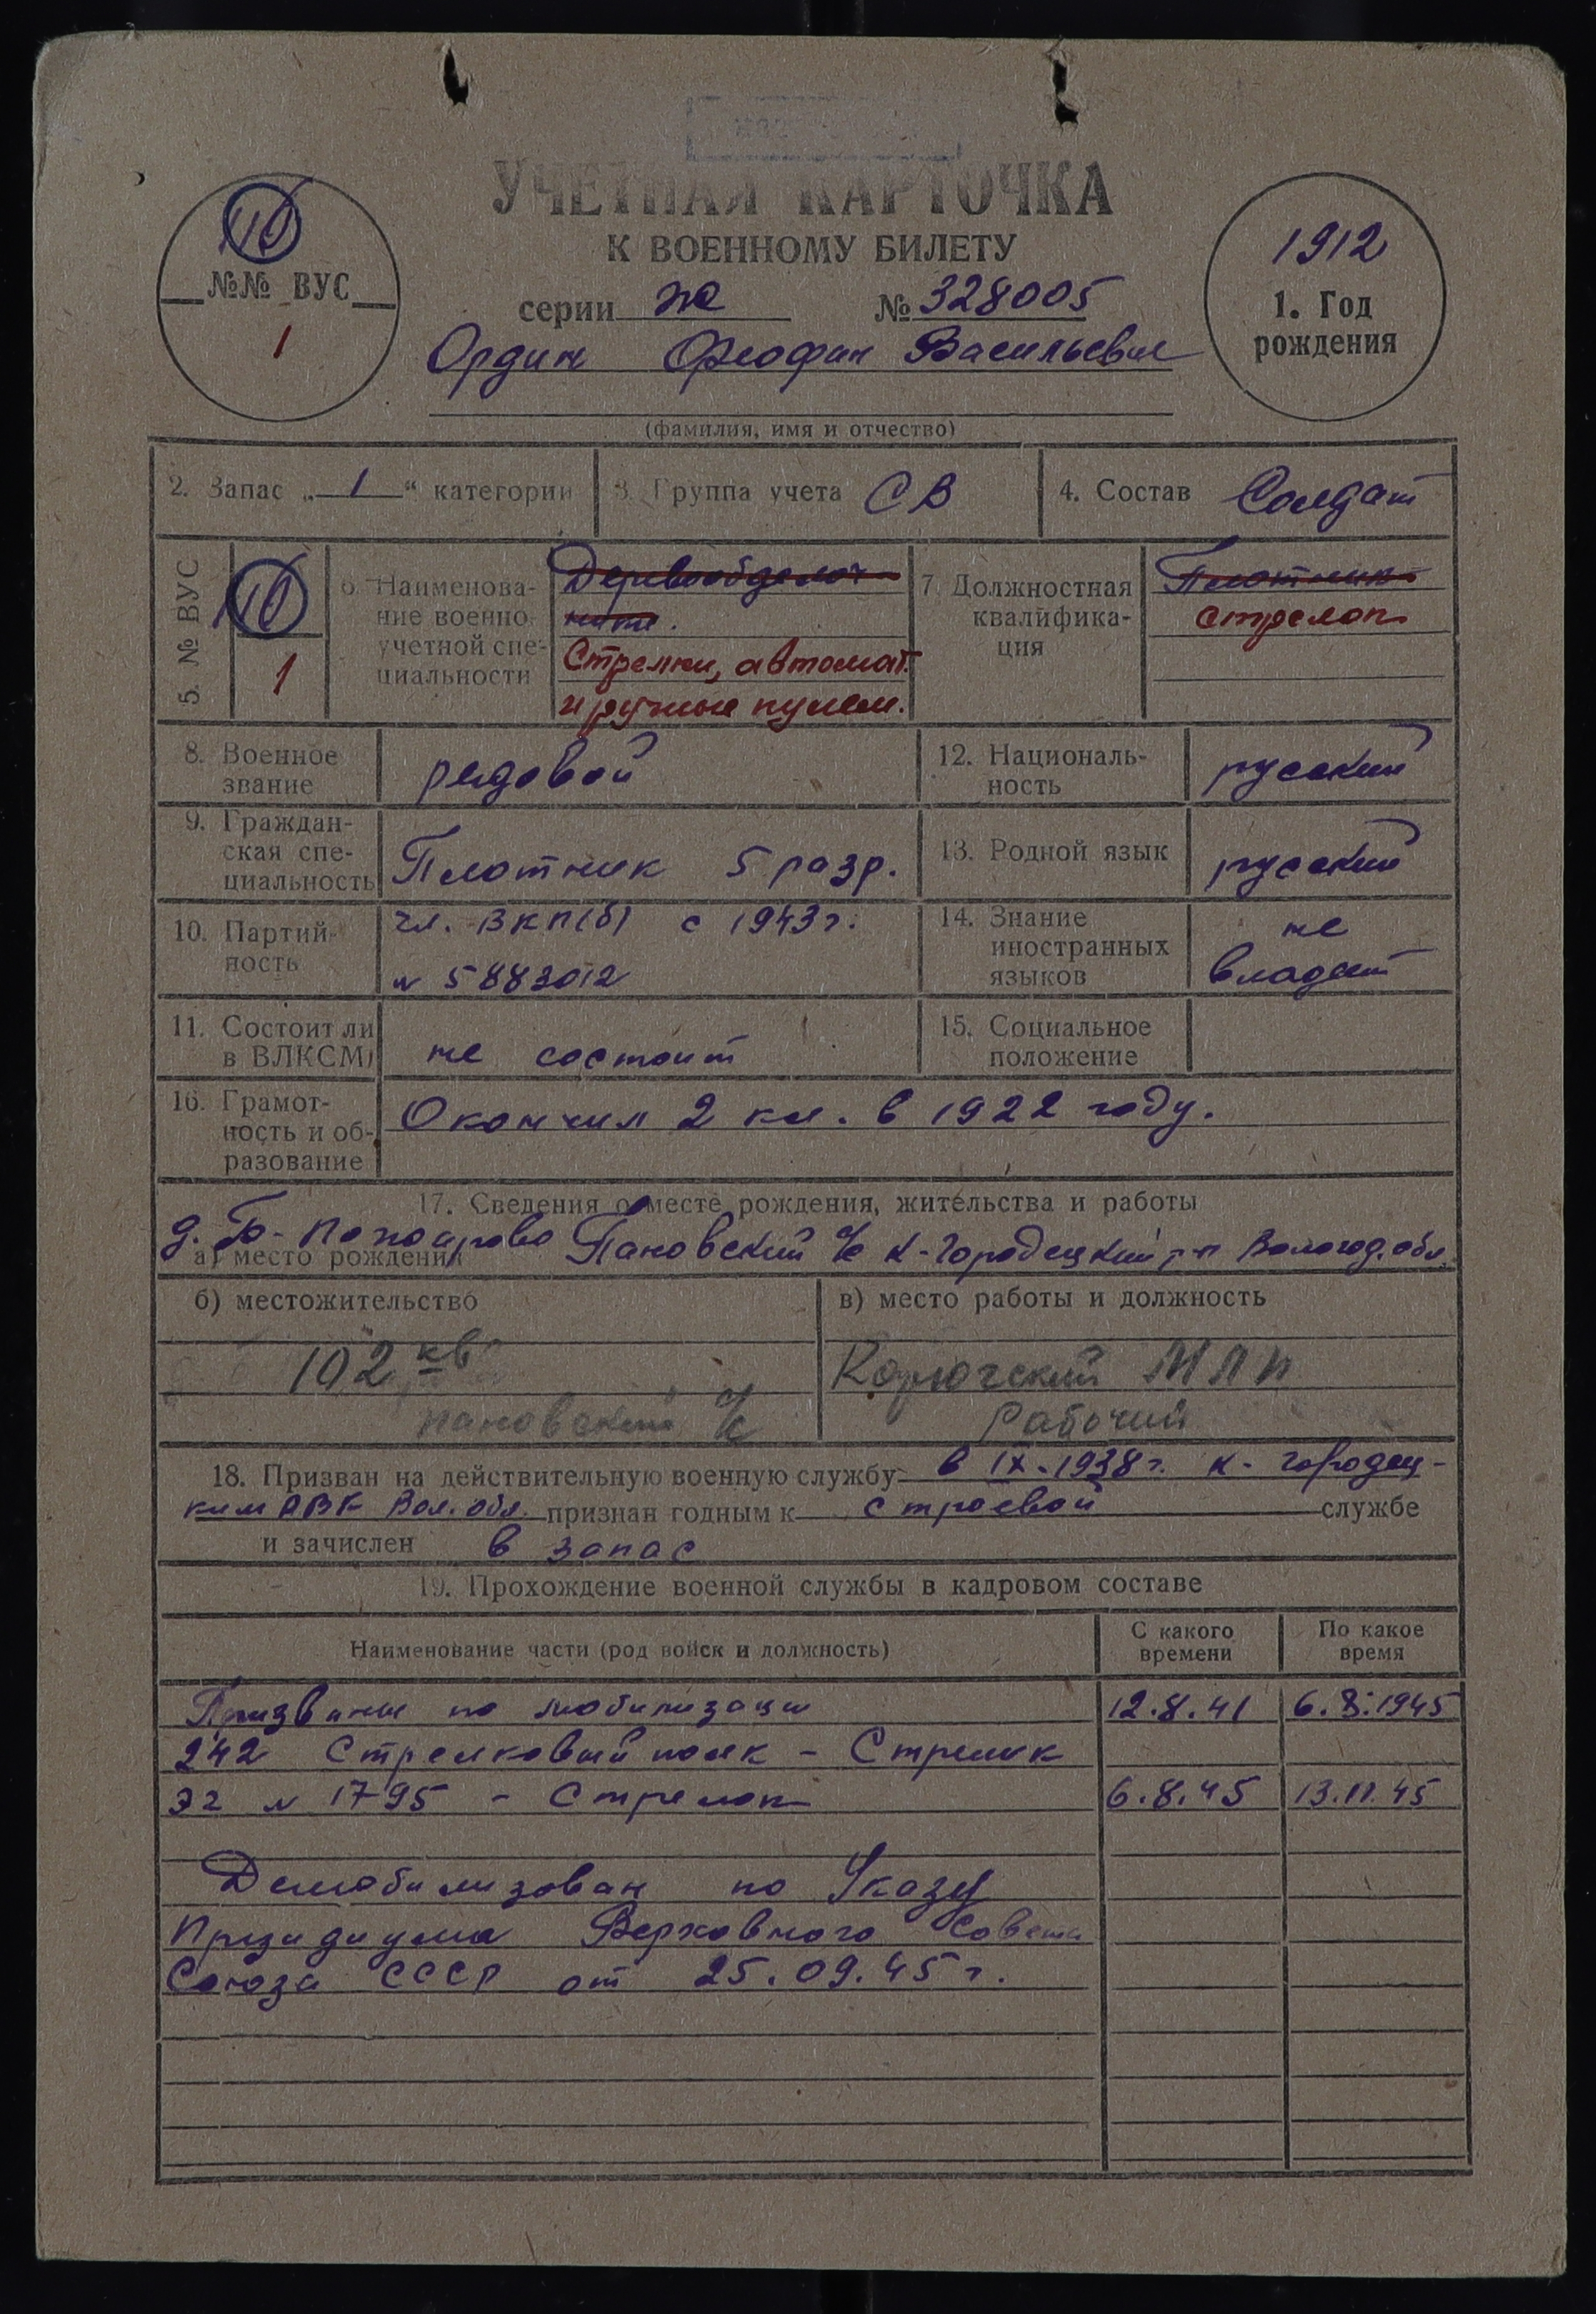 УЧЕТНАЯ КАРТОЧКА
К ВОЕННОМУ БИЛЕТУ
серии № 328005
Ордин Феофан Васильевич
(фамилия, имя и отчество)
№№ ВУС
1
1912
1. Год
рождения
2. Запас „1“ категории
3. Группа учета СВ
4. Состав Солдат
5. № ВУС
1
6. Наименова-
ние военно-
учетной спе-
циальности
Стрелки, автомат.
и ручные пулем.
7. Должностная
квалифика-
ция
Плотник
Стрелок
8. Военное
звание
рядовой
12. Националь-
ность
русский
9. Граждан-
ская спе-
циальность
Плотник 5 разр.
13. Родной язык
русский
10. Партий-
ность
чл. ВКП(б) с 1943 г.
№ 5883012
14. Знание
иностранных
языков
не
владеет
11. Состоит ли
в ВЛКСМ
не состоит
15. Социальное
положение
16. Грамот-
ность и об-
разование
Окончил 2 кл. в 1922 году.
17. Сведения о месте рождения, жительства и работы
а) место рождения
Пановский с/с К-Городецкий р-н Вологод. обл.
б) местожительство
102 кв
пановский с/с
в) место работы и должность
Рабочий
18. Призван на действительную военную службу в IX-1938 г. К-Городец-
ким РВК Вол. обл. признан годным к строевой службе
и зачислен в запас
19. Прохождение военной службы в кадровом составе
Наименование части (род войск и должность)
С какого
времени
По какое
время
Призван по мобилизации 12.8.41 6.8.1945
242 Стрелковый полк - Стрелок
ЭГ № 1795 - Стрелок 6.8.45 13.11.45
Демобилизован по Указу
Президиума Верховного Совета
Союза СССР от 25.09.45 г.